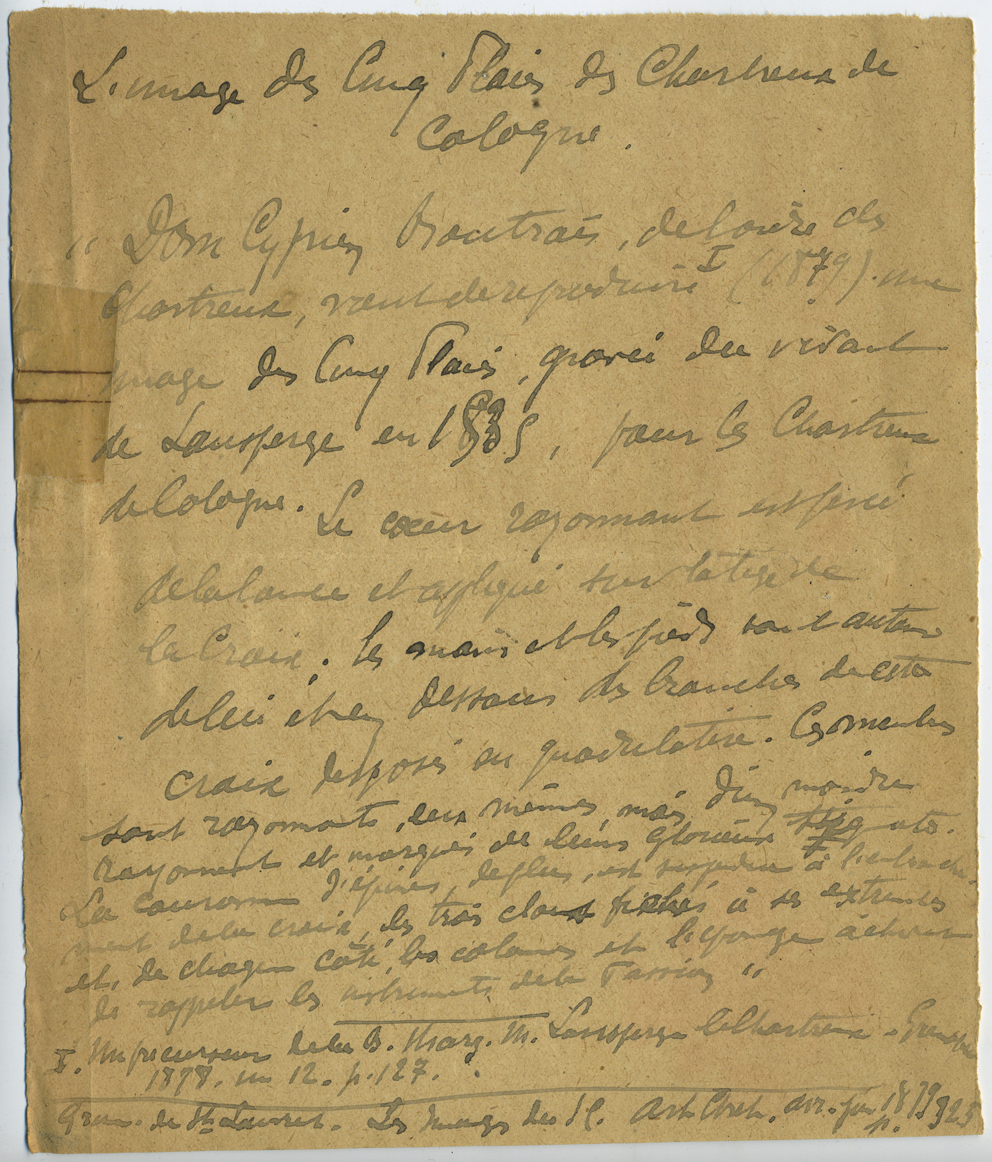 L'image des Cinq Plaies des Chartreux de
Cologne.
" Dom Cyprien Boutrais, de l'ordre des
Chartreux, vient de reproduire I (1879). une
image des Cinq Plaies, gravée du vivant
de Lansperge en 1535, pour les Chartreux
de Cologne. Le cœur rayonnant est percé
de la lance et appliqué sur la tige de
la Croix; les mains et les pieds sont autour
de lui et en dessous des branches de cette
croix disposés en quadrilatère. Ces membres
sont rayonnants, eux mêmes, mais d'un moindre
rayonnement et marqués de leurs glorieux stigmates.
La couronne d'épines, de plus, est suspendue à l'entrecroise
ment de la croix, les trois clous fichés à ses extrémités
et, de chaque côté, les colonnes et l'éponge achèvent
de rappeler les instruments de la Passion "
I. Un précurseur de la B. Marg. M. Lansperge le Chartreux - Grenoble
1878. in 12. p. 127.
Grim. de St Laurent. Les Images du SC. Art Chret. avr. juin 1879 p. 325